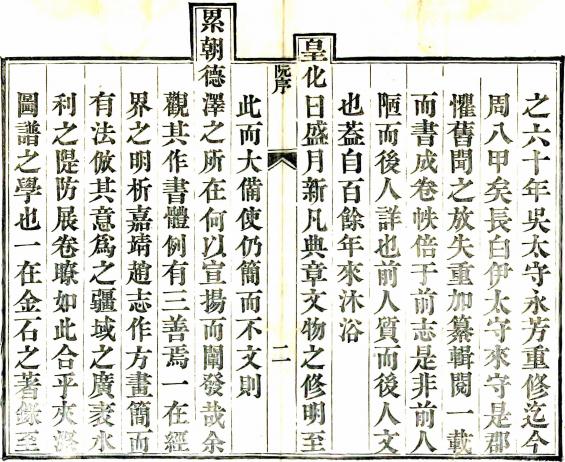 之六十年吳太守永芳重修迄今
周八甲矣長白伊太守來守是郡
懼舊聞之放失重加纂輯閱一載
而書成卷帙倍于前志是非前人
陋而後人詳也前人質而後人文
也葢自百餘年來沐浴
皇化日盛月新凡典章文物之修明至
阮序
二
此而大備使仍簡而不文則
累朝德澤之所在何以宣揚而闡發哉余
觀其作書體例有三善焉一在經
界之明析嘉靖趙志作方畫簡而
有法倣其意爲之疆域之廣袤水
利之隄防展卷瞭如此合乎夾漈
圖譜之學也一在金石之著錄至